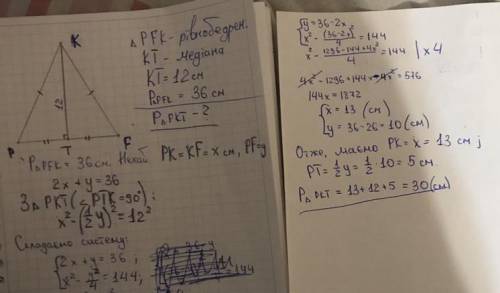 K
12
P
T
F
△ PFK - рівнобедрен.
KT - медіана
KT = 12 см
P△PFK = 36 см
P△PKT - ?
P△PFK = 36 см. Нехай PK = KF = x см, PF = y
2x + y = 36
З △ PKT (∠PTK = 90°) :
x² - (½y)² = 12²
Складаємо систему:
{2x + y = 36 ;
{x² - y²/4 = 144 ;
{y = 36 - 2x
{x² - (36-2x)²/4 = 144
x² - 1296 - 144 + 4x²/4 = 144 | x 4
4x² - 1296 + 144x - 4x² = 576
144x = 1872
{x = 13 (см)
{y = 36 - 26 = 10 (см)
Отже, маємо PK = x = 13 см ;
PT = ½y = ½ · 10 = 5 см.
P△ = 13 + 12 + 5 = 30 (см)